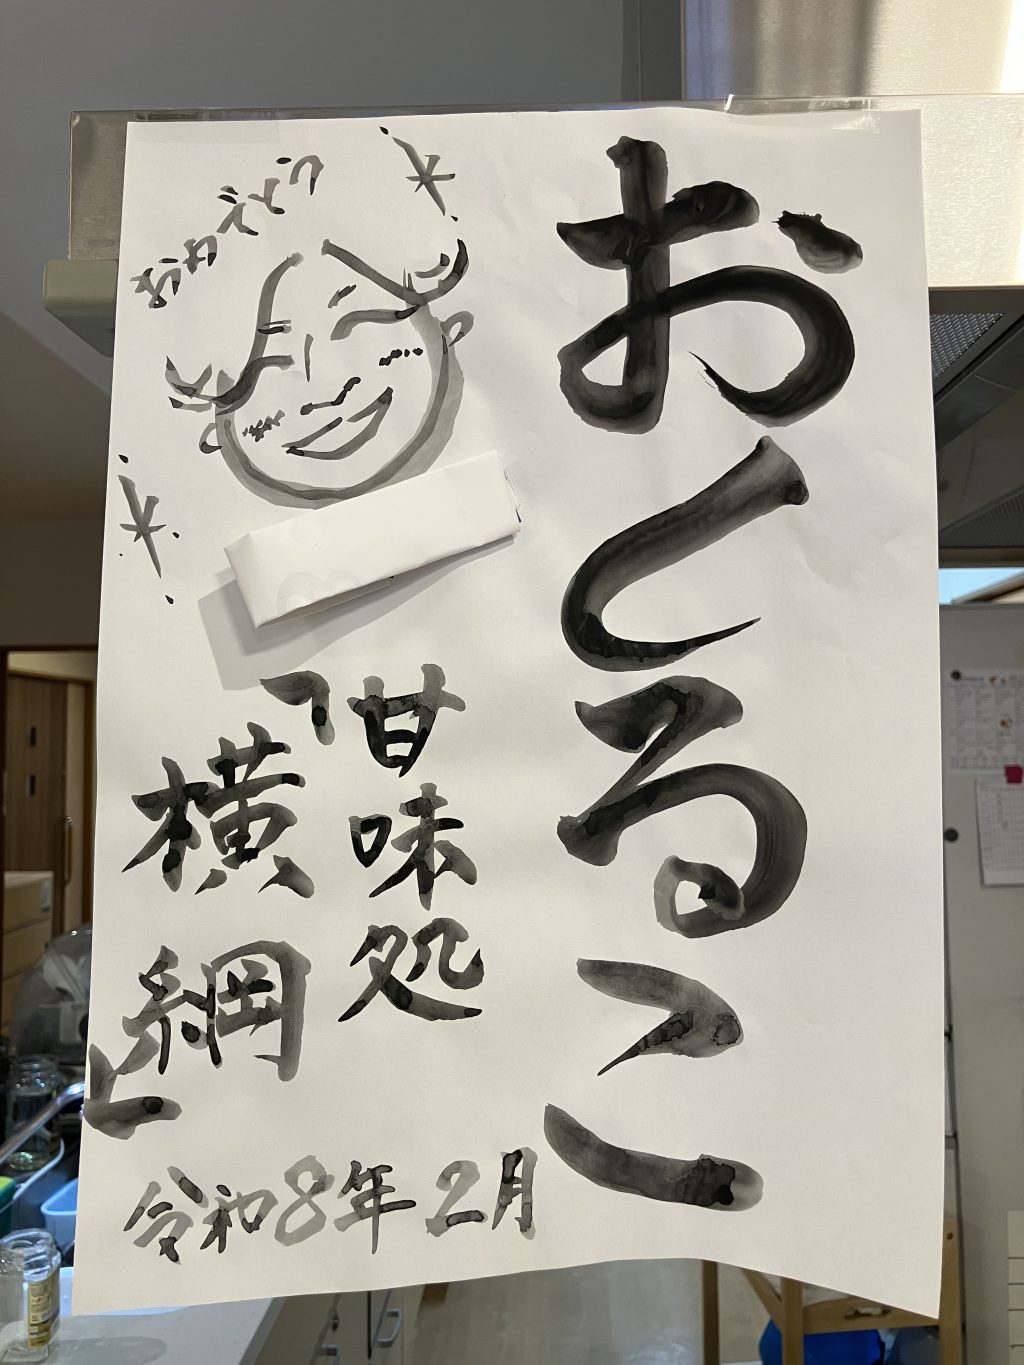 おしるこ
おめでとう
甘味処
「横綱」
令和8年2月